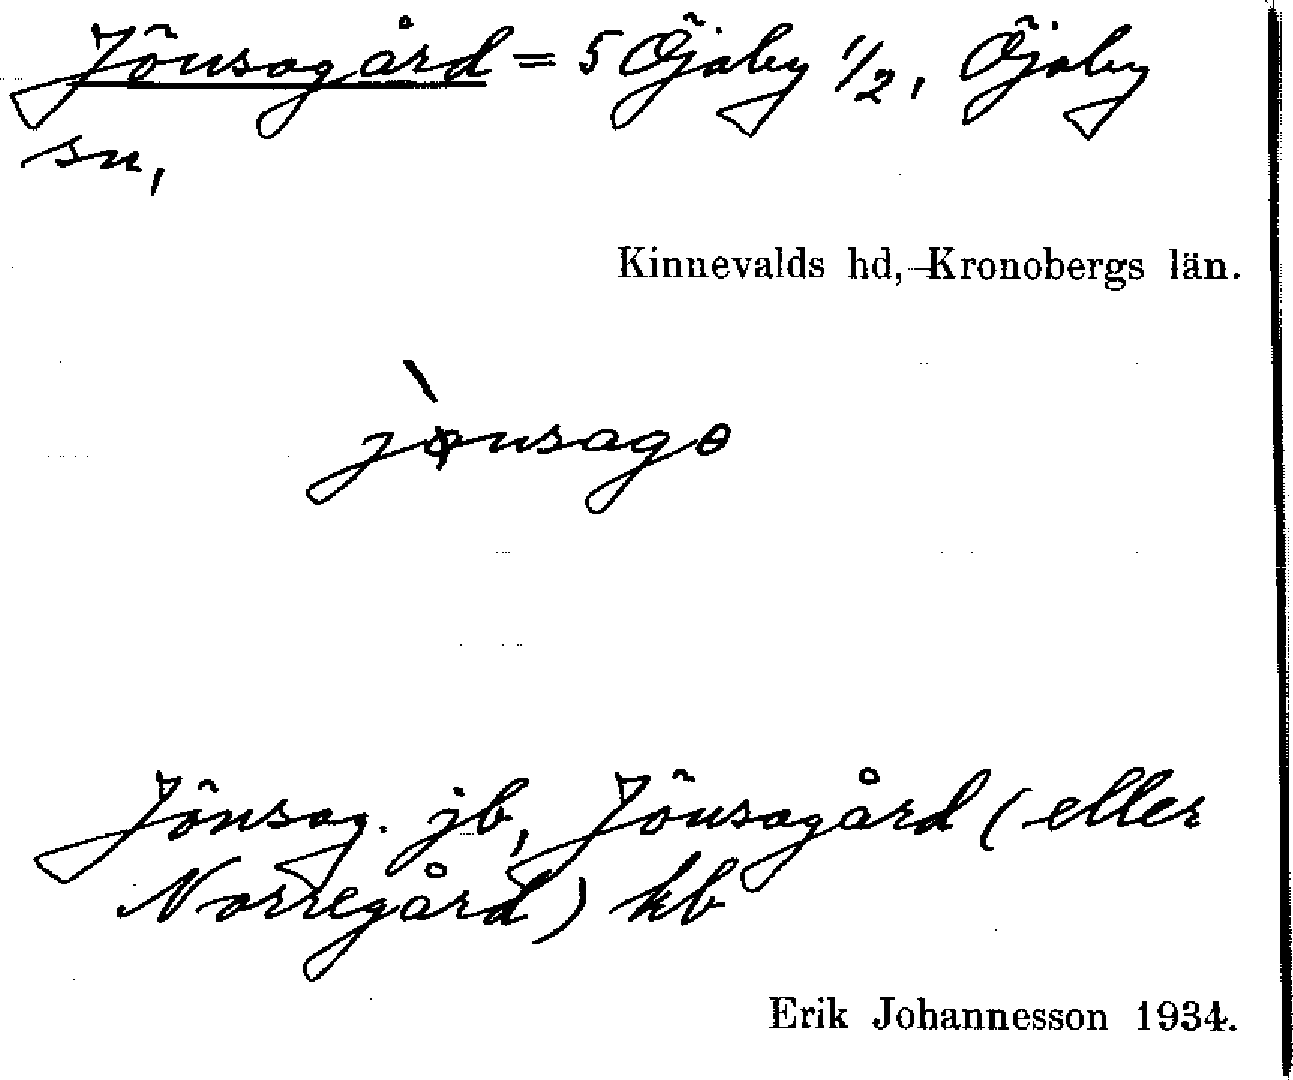 Jönsagård = 5 Öjaby 1/2, Öjaby
sn,
Kinnevalds hd, Kronobergs län.
Jönsag. jb, Jönsagård (eller
Norregård) kb
Erik Johannesson 1934.